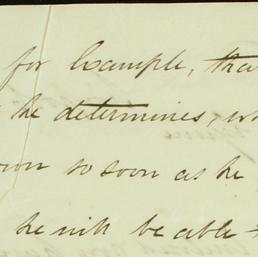 for Example, tha
he determines, wh
own so soon as he
he will be able